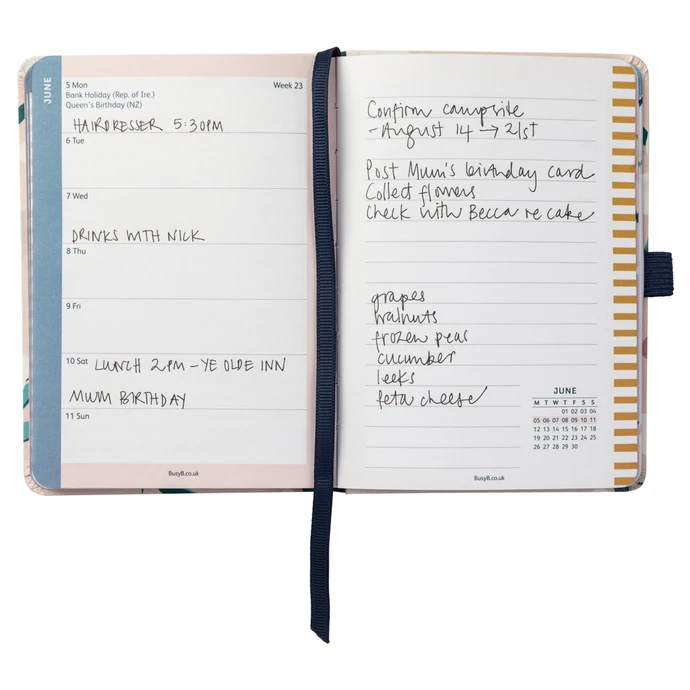 JUNE
5 Mon
Week 23
Bank Holiday (Rep. of Ire.)
Queen's Birthday (NZ)
HAIRDRESSER 5:30PM
6 Tue
7 Wed
DRINKS WITH NICK
8 Thu
9 Fri
10 Sat LUNCH 2PM – YE OLDE INN
MUM BIRTHDAY
11 Sun
BusyB.co.uk
Confirm campsite
- August 14 → 21st
Post Mum's birthday card
Collect flowers
Check with Becca re cake
grapes
walnuts
frozen peas
cucumber
leeks
feta cheese
JUNE
M T W T F S S
01 02 03 04
05 06 07 08 09 10 11
12 13 14 15 16 17 18
19 20 21 22 23 24 25
26 27 28 29 30
BusyB.co.uk